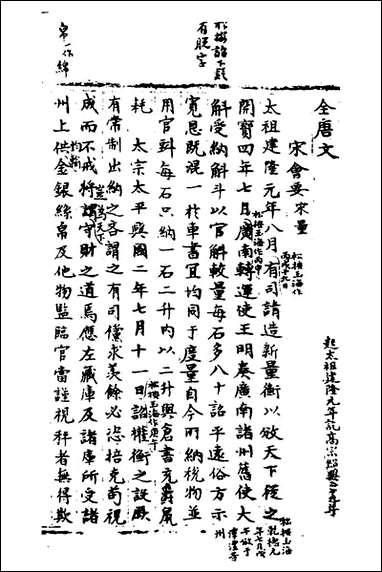 全唐文
宋會要 宋量
松按玉海作
丙戌十九日
太祖建隆元年八月有司請造新量衡以攽天下從之
松按玉海作丙申
開寶四年七月廣南轉運使王明奏廣南諸州舊使大
松按詔下疑
有脫字
斛受納斛斗以官斛較量每石多八十詔平遠俗方示
寬恩旣混一於車書宜均同于度量自今所納稅物並
用官斛每石只納一石二升內以二升與倉書充爵鼠
松按玉海作庚午
耗 太宗太平興國二年七月十一日詔權衡之設厥
有常制出納之吝謂之有司儻求羨餘必恣掊克苟視
豈為天下
成而不戒將謂守財之道焉應左藏庫及諸庫所受諸
帛一作綿
州上供金銀絲帛及他物監臨官當謹視秤者無得欺
起太祖建隆元年訖高宗紹興
松按玉海
乾德元
年七月戊
州